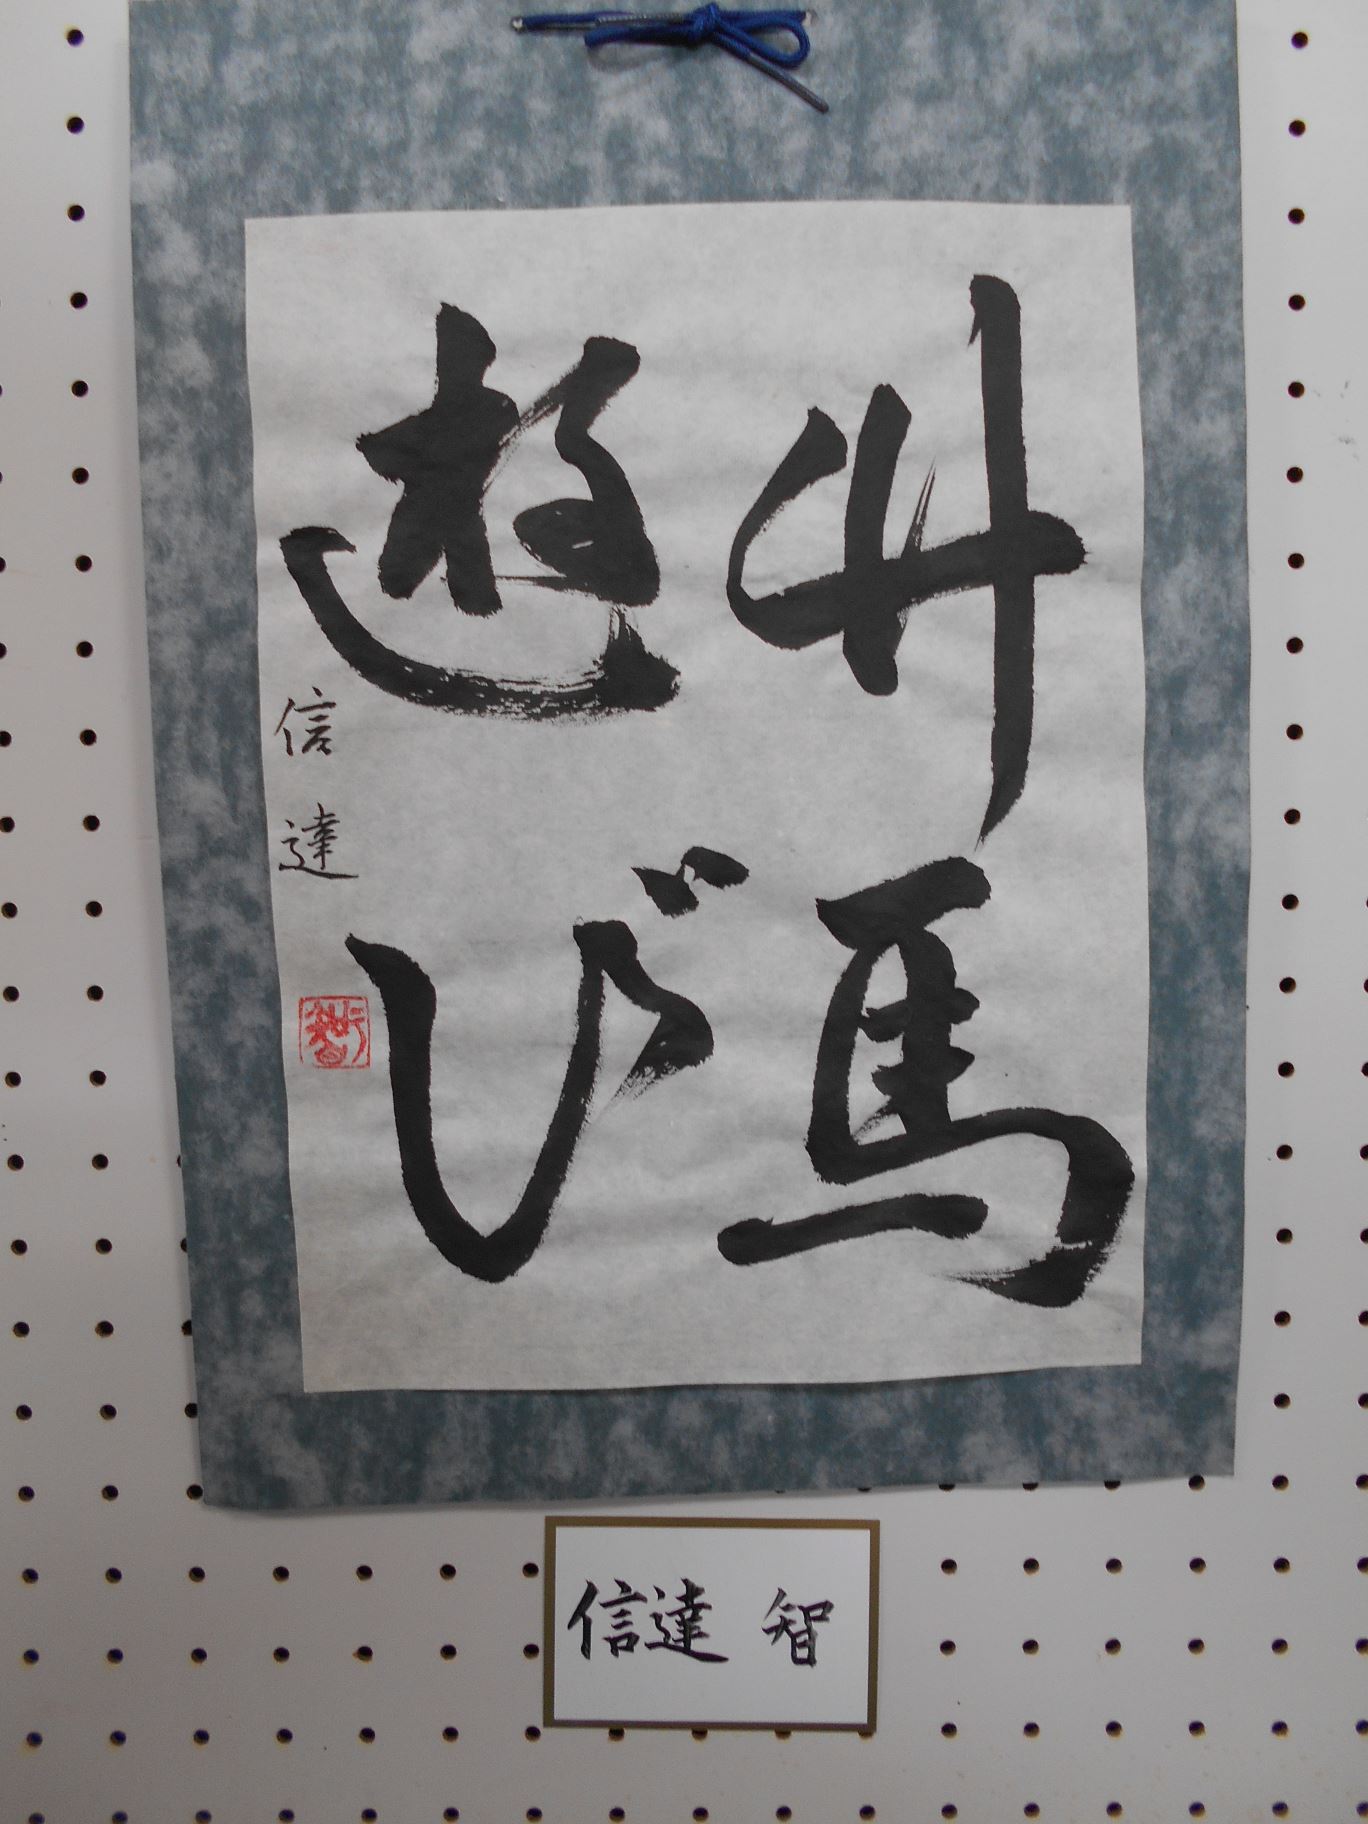 竹馬
遊び
信達
信達 智